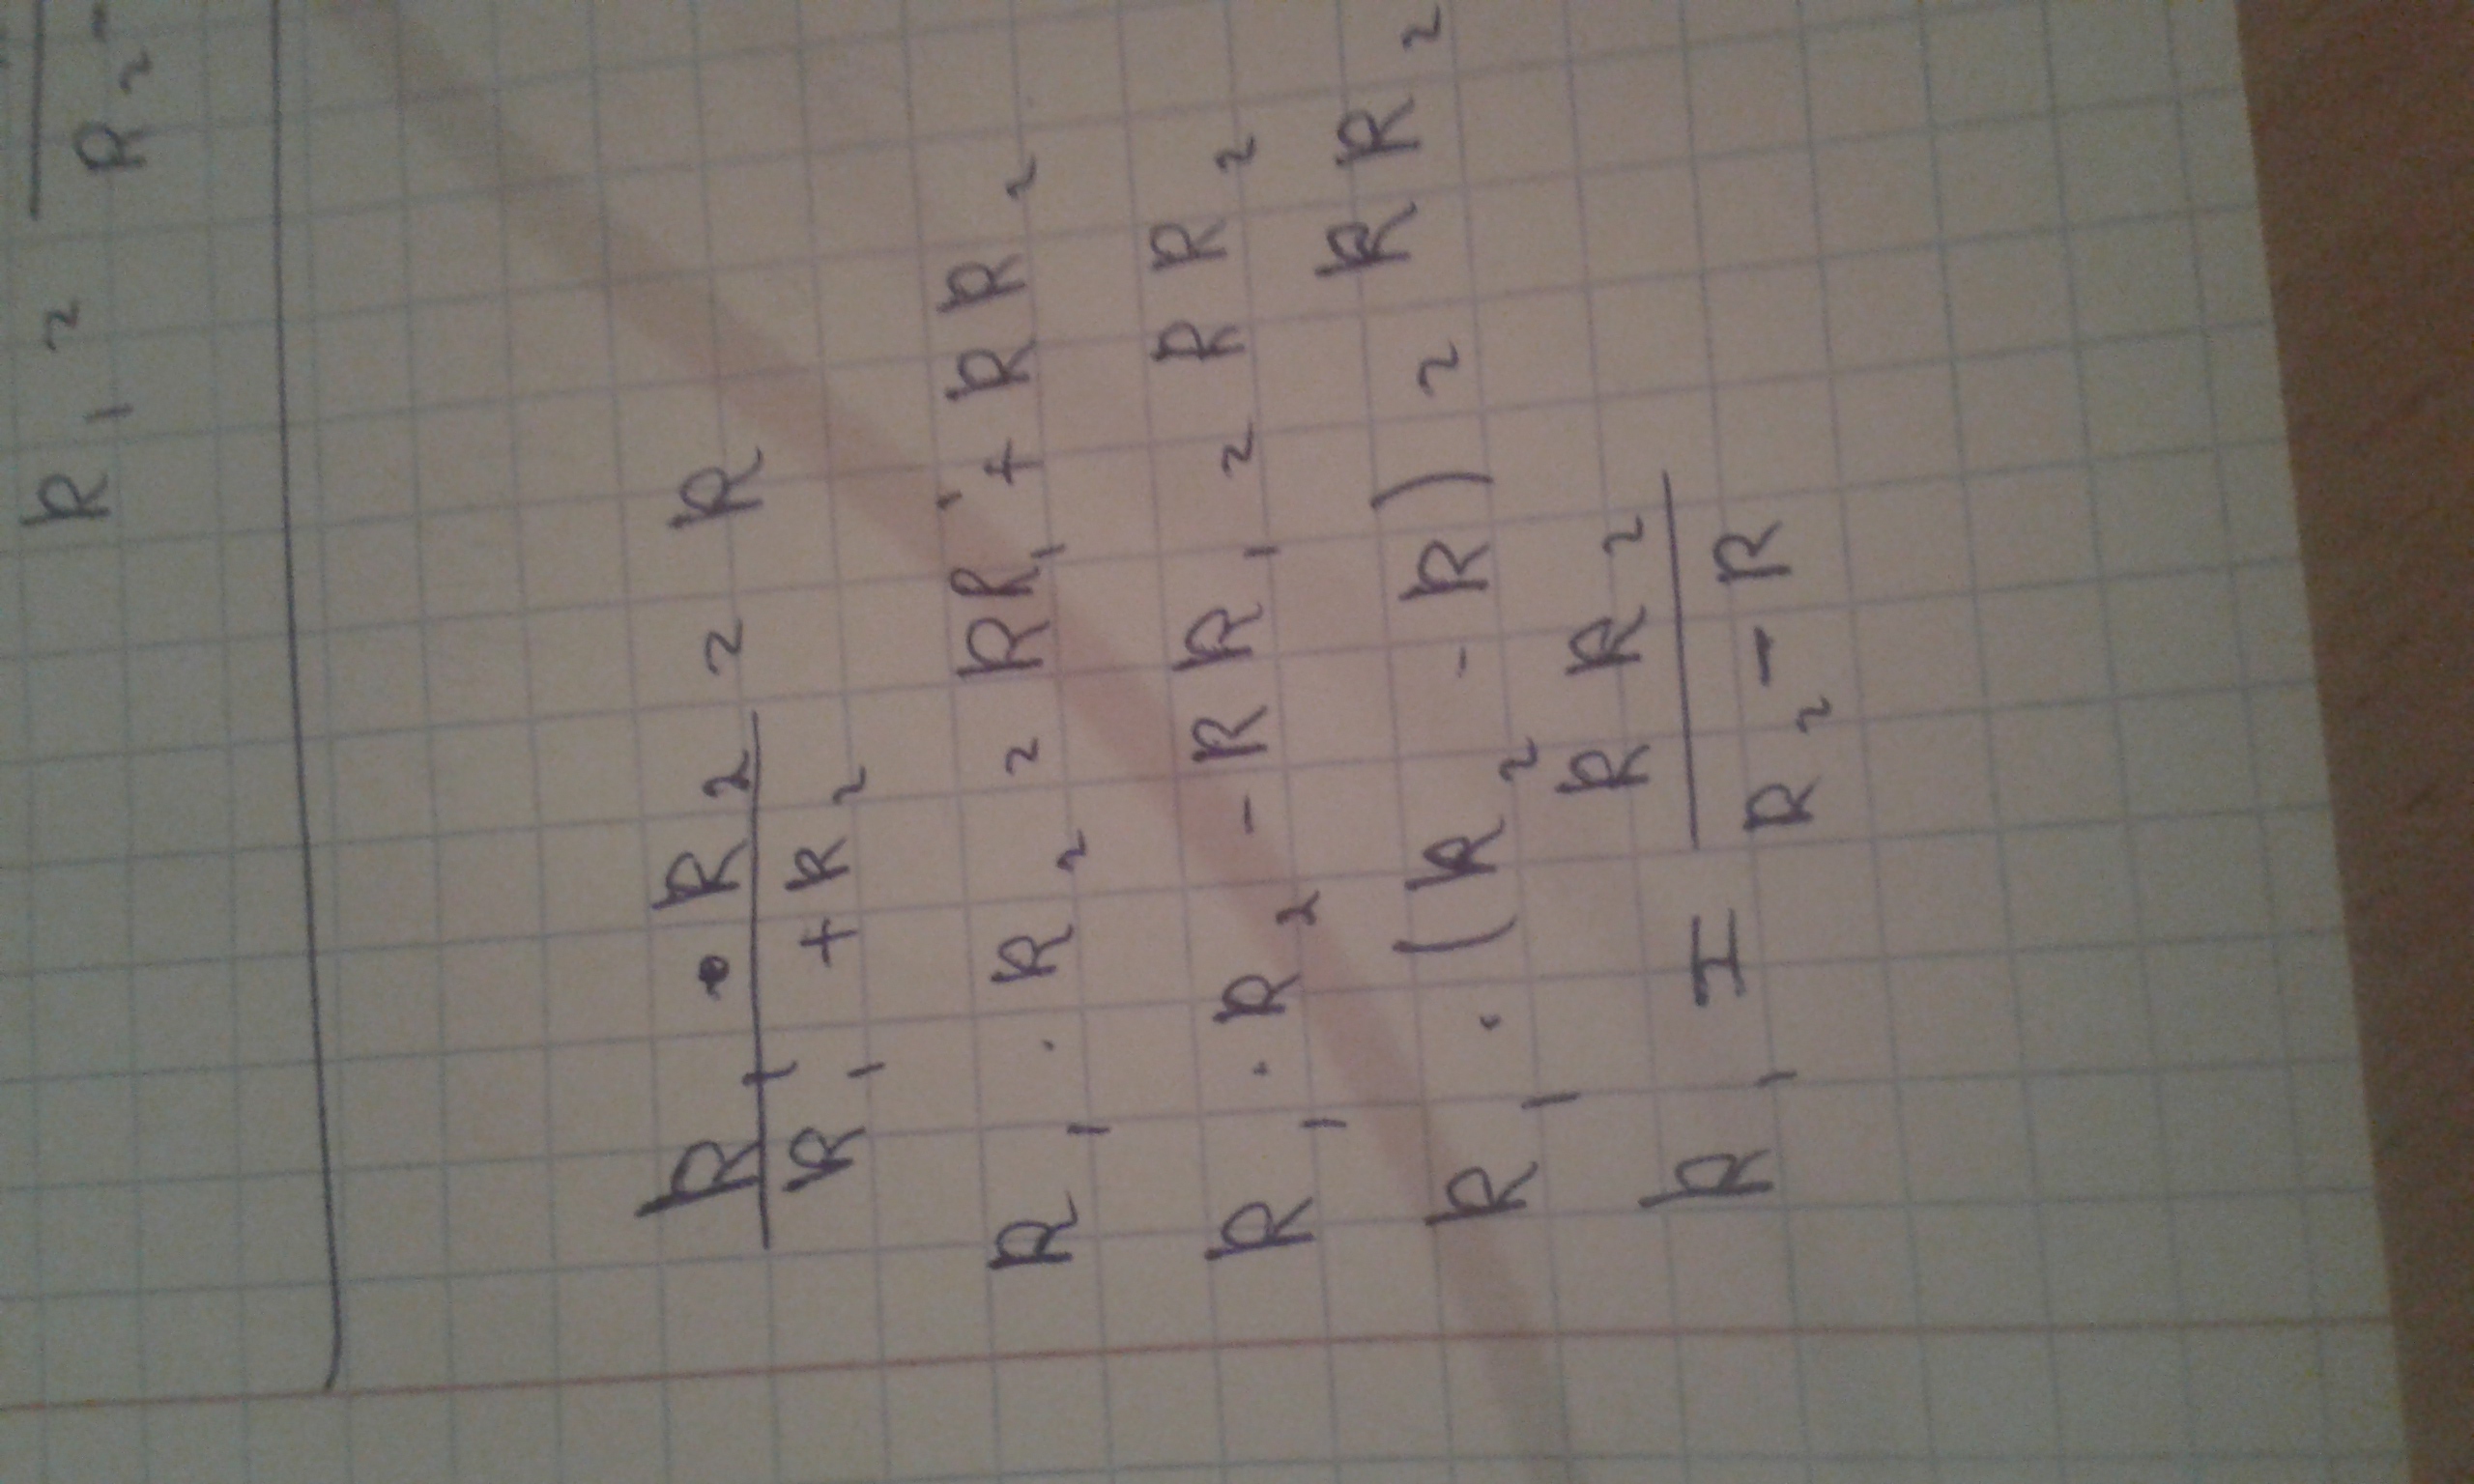 R₁ =
R₂ -
R₁ · R₂
R₁ + R₂ = R
R₁ · R₂ = RR₁ + RR₂
R₁ · R₂ - RR₁ = RR₂
R₁ · (R₂ - R) = RR₂
R₁ = RR₂
R₂ - R